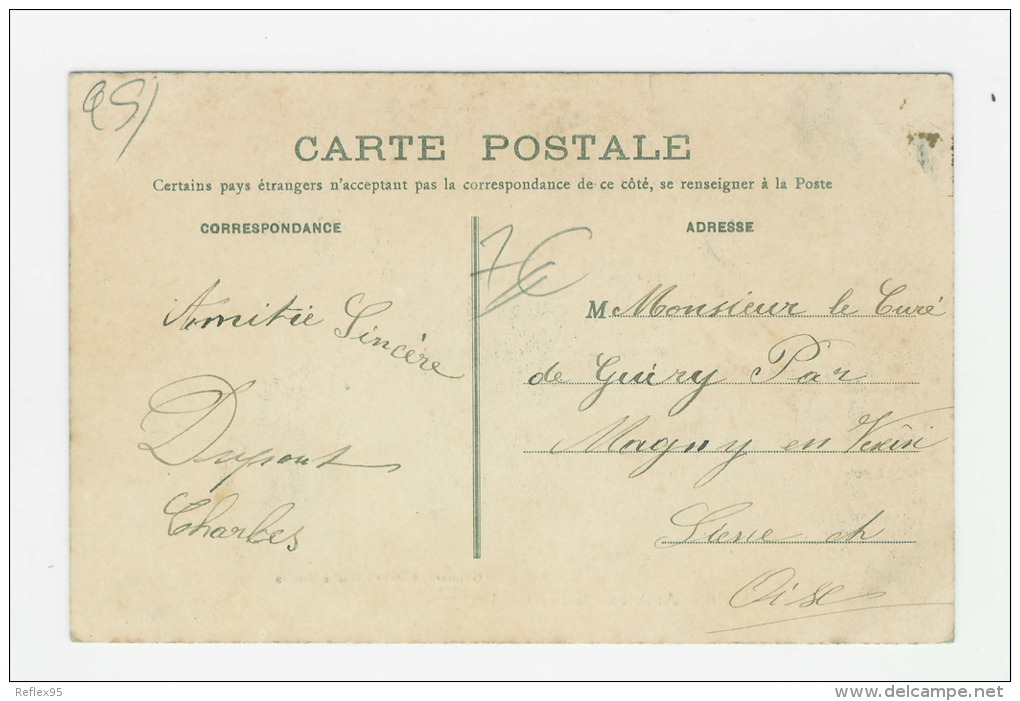 95)
CARTE POSTALE
Certains pays étrangers n'acceptant pas la correspondance de ce côté, se renseigner à la Poste
CORRESPONDANCE
Amitie Sincère
Dupont
Charles
7€
ADRESSE
M Monsieur le Curé
de Guiry Par
Magny en Vexin
Seine et
Oise
Reflex95
www.delcampe.net